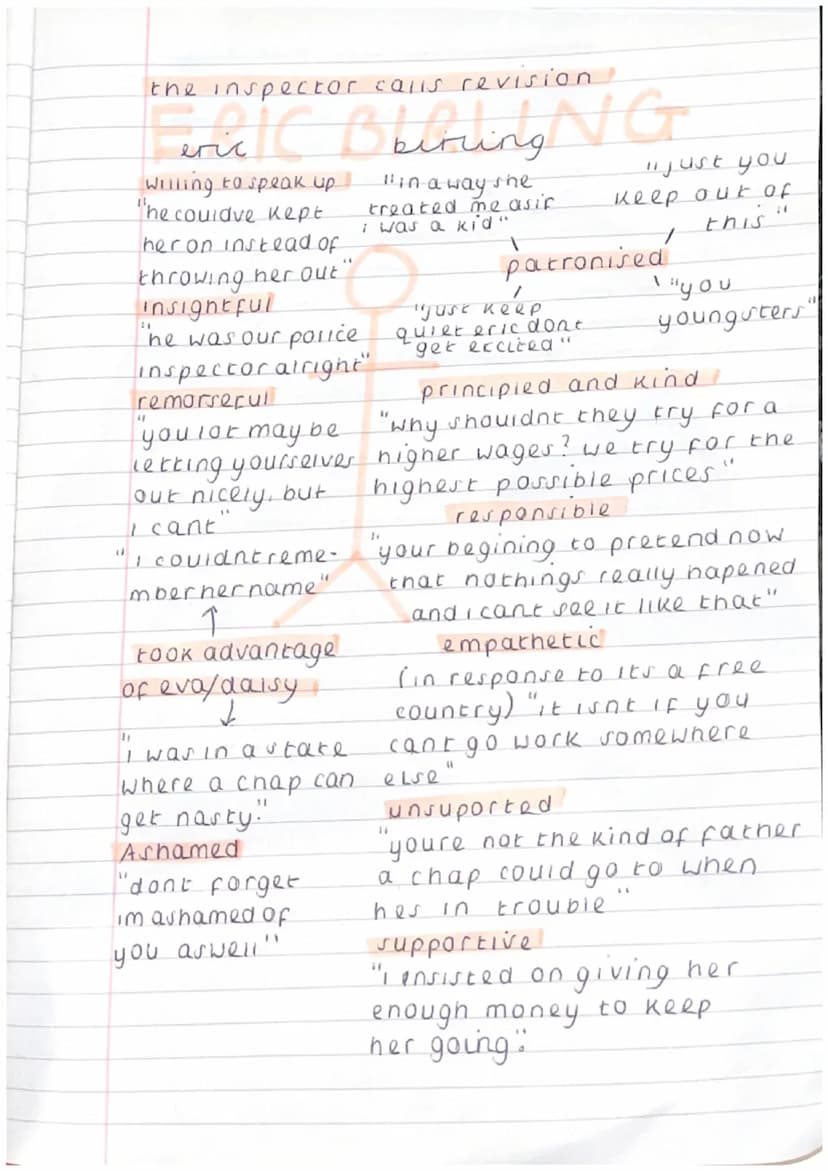 the inspector calls revision
ERIC BIRLING
eric birling
willing to speak up
"he couldve kept
her on instead of
throwing her out"
insightful
"he was our police
inspector alright"
remorseful
"you lot may be
letting yourselves
out nicely, but
i cant"
"i couldnt reme-
mber her name"
↑
took advantage
of eva/daisy
↓
"i was in a state
where a chap can
get nasty."
Ashamed
"dont forget
im ashamed of
you aswell"
"in a way she
treated me as if
i was a kid"
"just you
keep out of
this"
patronised
"just keep
quiet eric dont
get excited"
"you
youngsters"
principled and kind
"why shouldnt they try for a
higher wages? we try for the
highest possible prices"
responsible
"your begining to pretend now
that nothings really hapened
and i cant see it like that"
empathetic
(in response to its a free
country) "it isnt if you
cant go work somewhere
else"
unsuported
"youre not the kind of father
a chap could go to when
hes in trouble"
supportive
"i insisted on giving her
enough money to keep
her going".